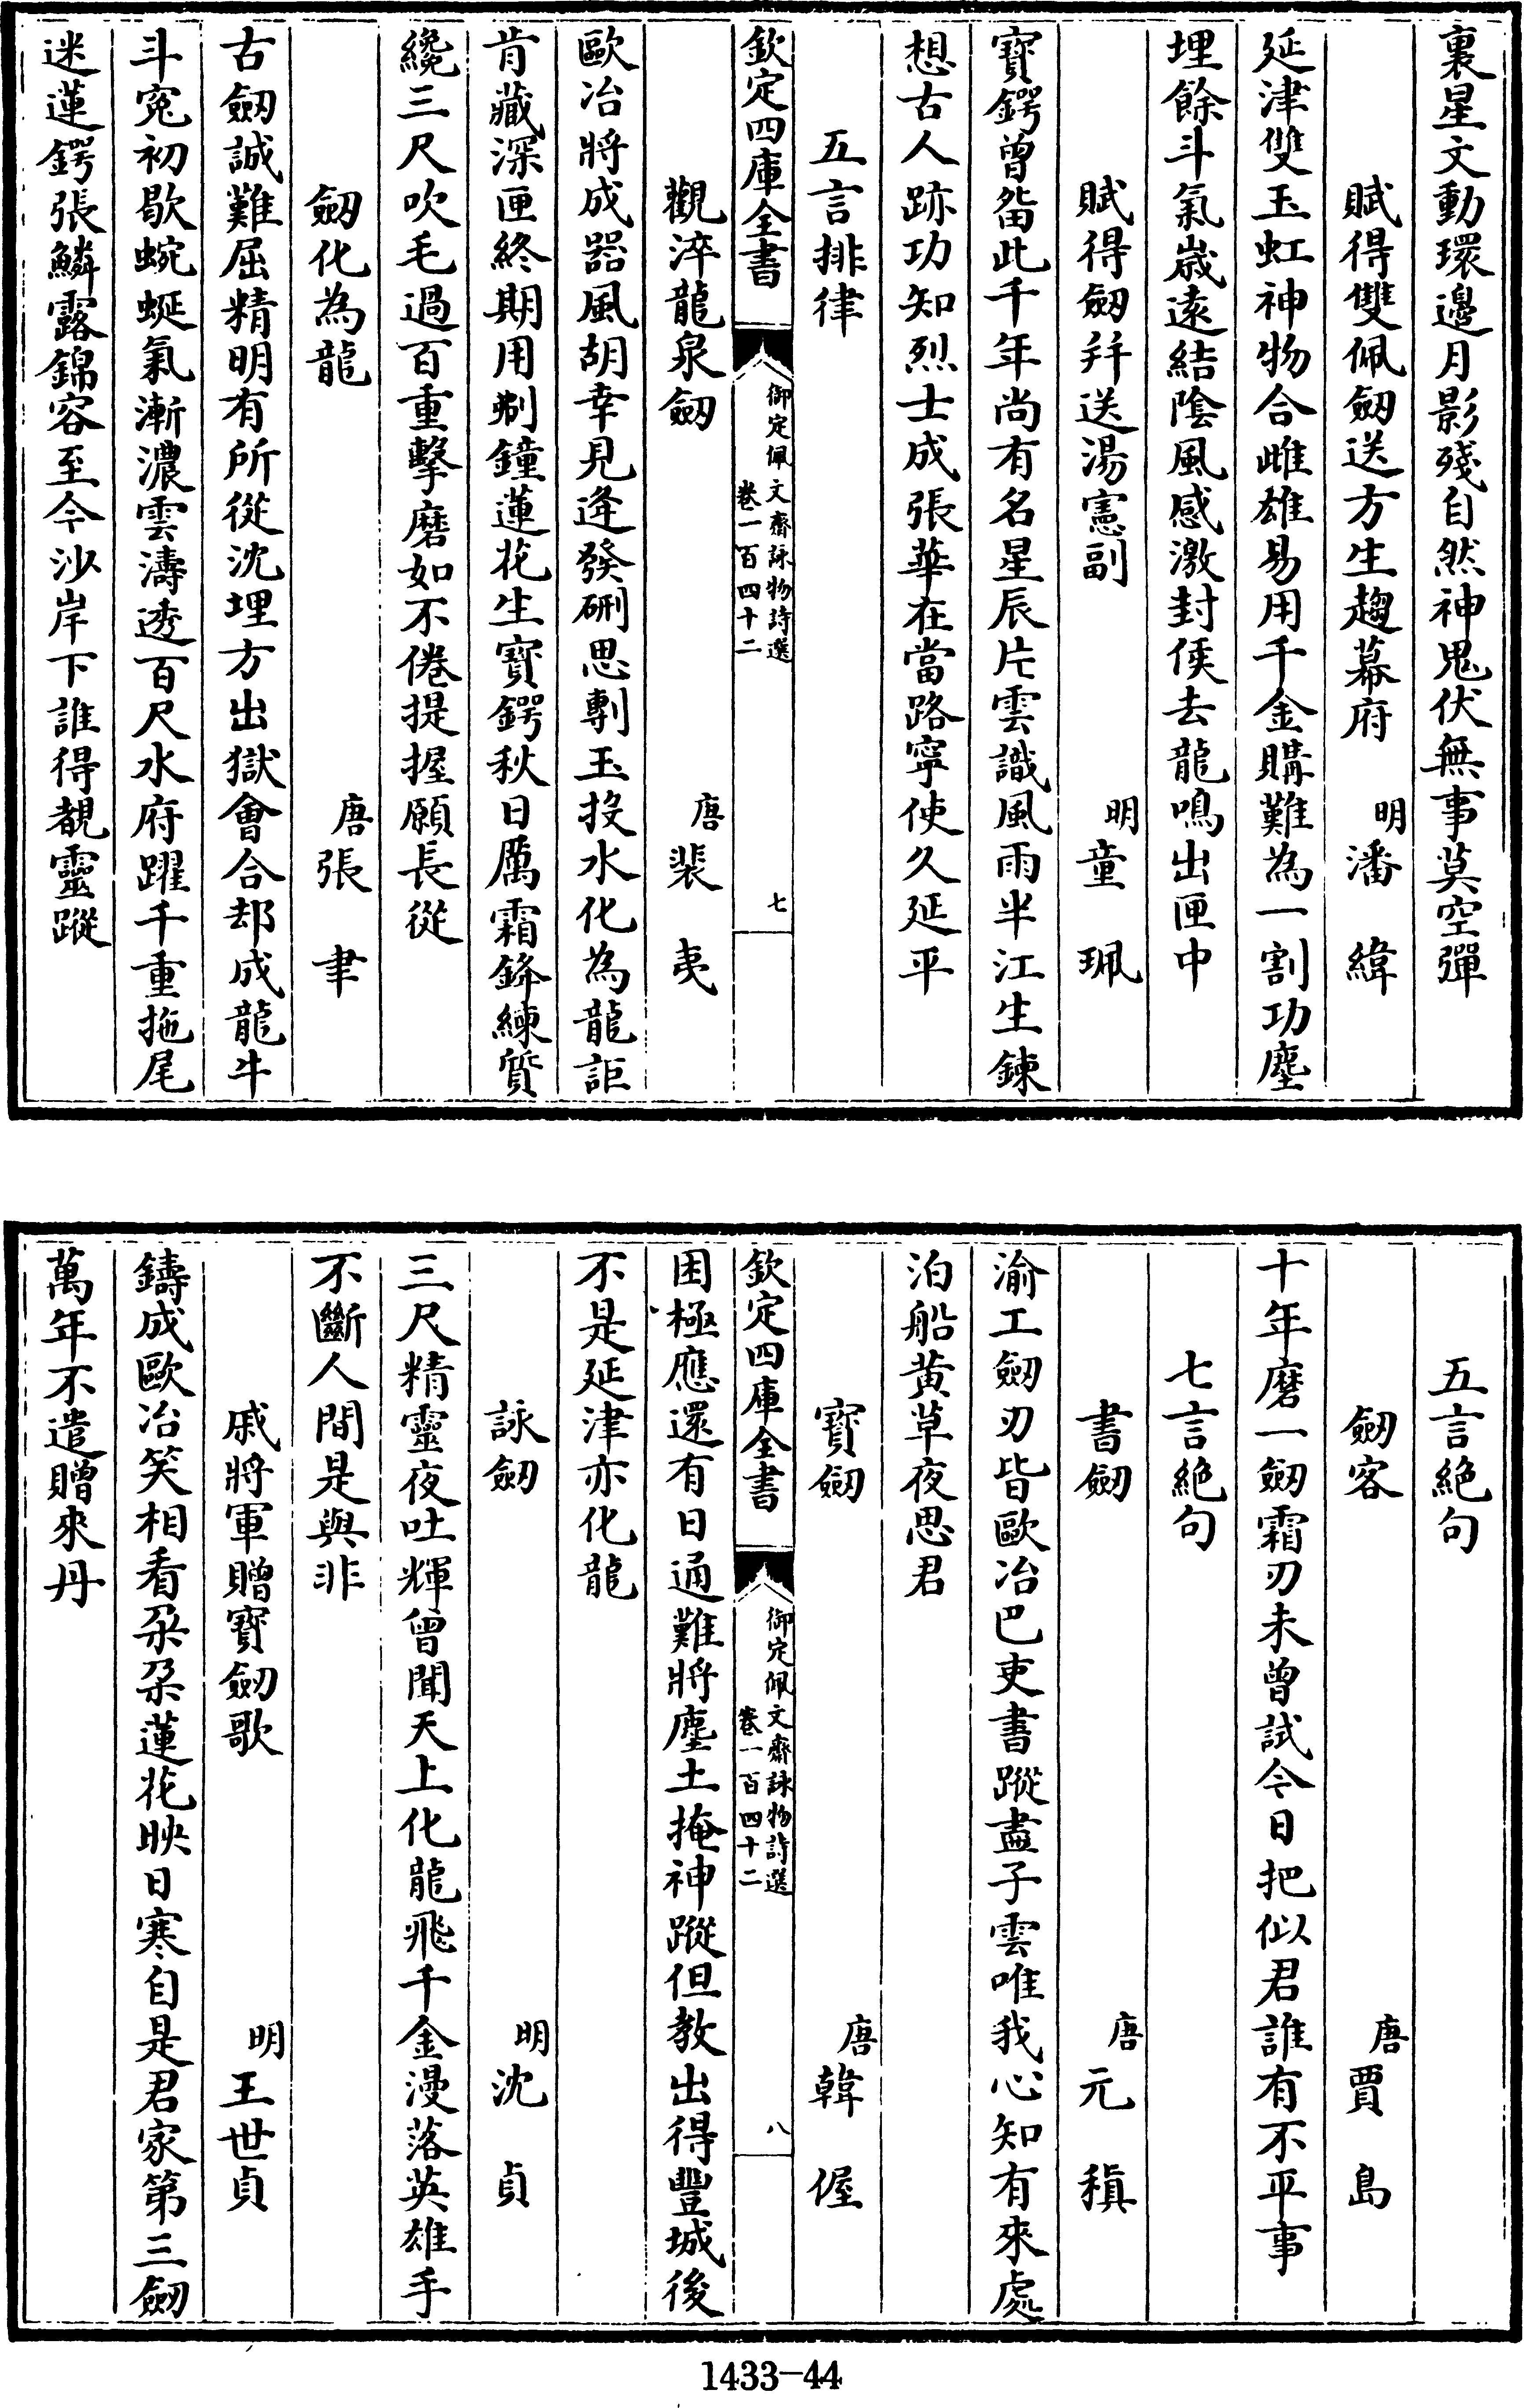 裏星文動環邊月影殘自然神鬼伏無事莫空彈
賦得雙佩劒送方生趨幕府 明潘緯
延津雙玉虹神物合雌雄易用千金購難為一割功塵
埋餘斗氣歲遠結陰風感激封侯去龍鳴出匣中
賦得劒幷送湯憲副 明童珮
寳鍔曾畱此千年尚有名星辰片雲識風雨半江生鍊
想古人跡功知烈士成張華在當路寧使久延平
五言排律
欽定四庫全書
御定佩文齋詠物詩選
卷一百四十二
七
觀淬龍泉劒 唐裴夷
歐冶將成器風胡幸見逢發硎思剸玉投水化為龍詎
肯藏深匣終期用剸鐘蓮花生寳鍔秋日厲霜鋒練質
纔三尺吹毛過百重擊磨如不倦提握願長從
劒化為龍 唐張聿
古劒誠難屈精明有所從沈埋方出獄會合却成龍牛
斗寃初歇蜿蜒氣漸濃雲濤透百尺水府躍千重拖尾
迷蓮鍔張鱗露錦容至今沙岸下誰得覩靈蹤
五言絶句
劒客 唐賈島
十年磨一劒霜刃未曾試今日把似君誰有不平事
七言絶句
書劒 唐元稹
渝工劒刃皆歐冶巴吏書蹤盡子雲唯我心知有來處
泊船黄草夜思君
寳劒 唐韓偓
欽定四庫全書
御定佩文齋詠物詩選
卷一百四十二
八
困極應還有日通難將塵土掩神蹤但教出得豐城後
不是延津亦化龍
詠劒 明沈貞
三尺精靈夜吐輝曾聞天上化龍飛千金漫落英雄手
不斷人間是與非
戚將軍贈寳劒歌 明王世貞
鑄成歐冶笑相看朶朶蓮花映日寒自是君家第三劒
萬年不遣贈來丹
1433-44